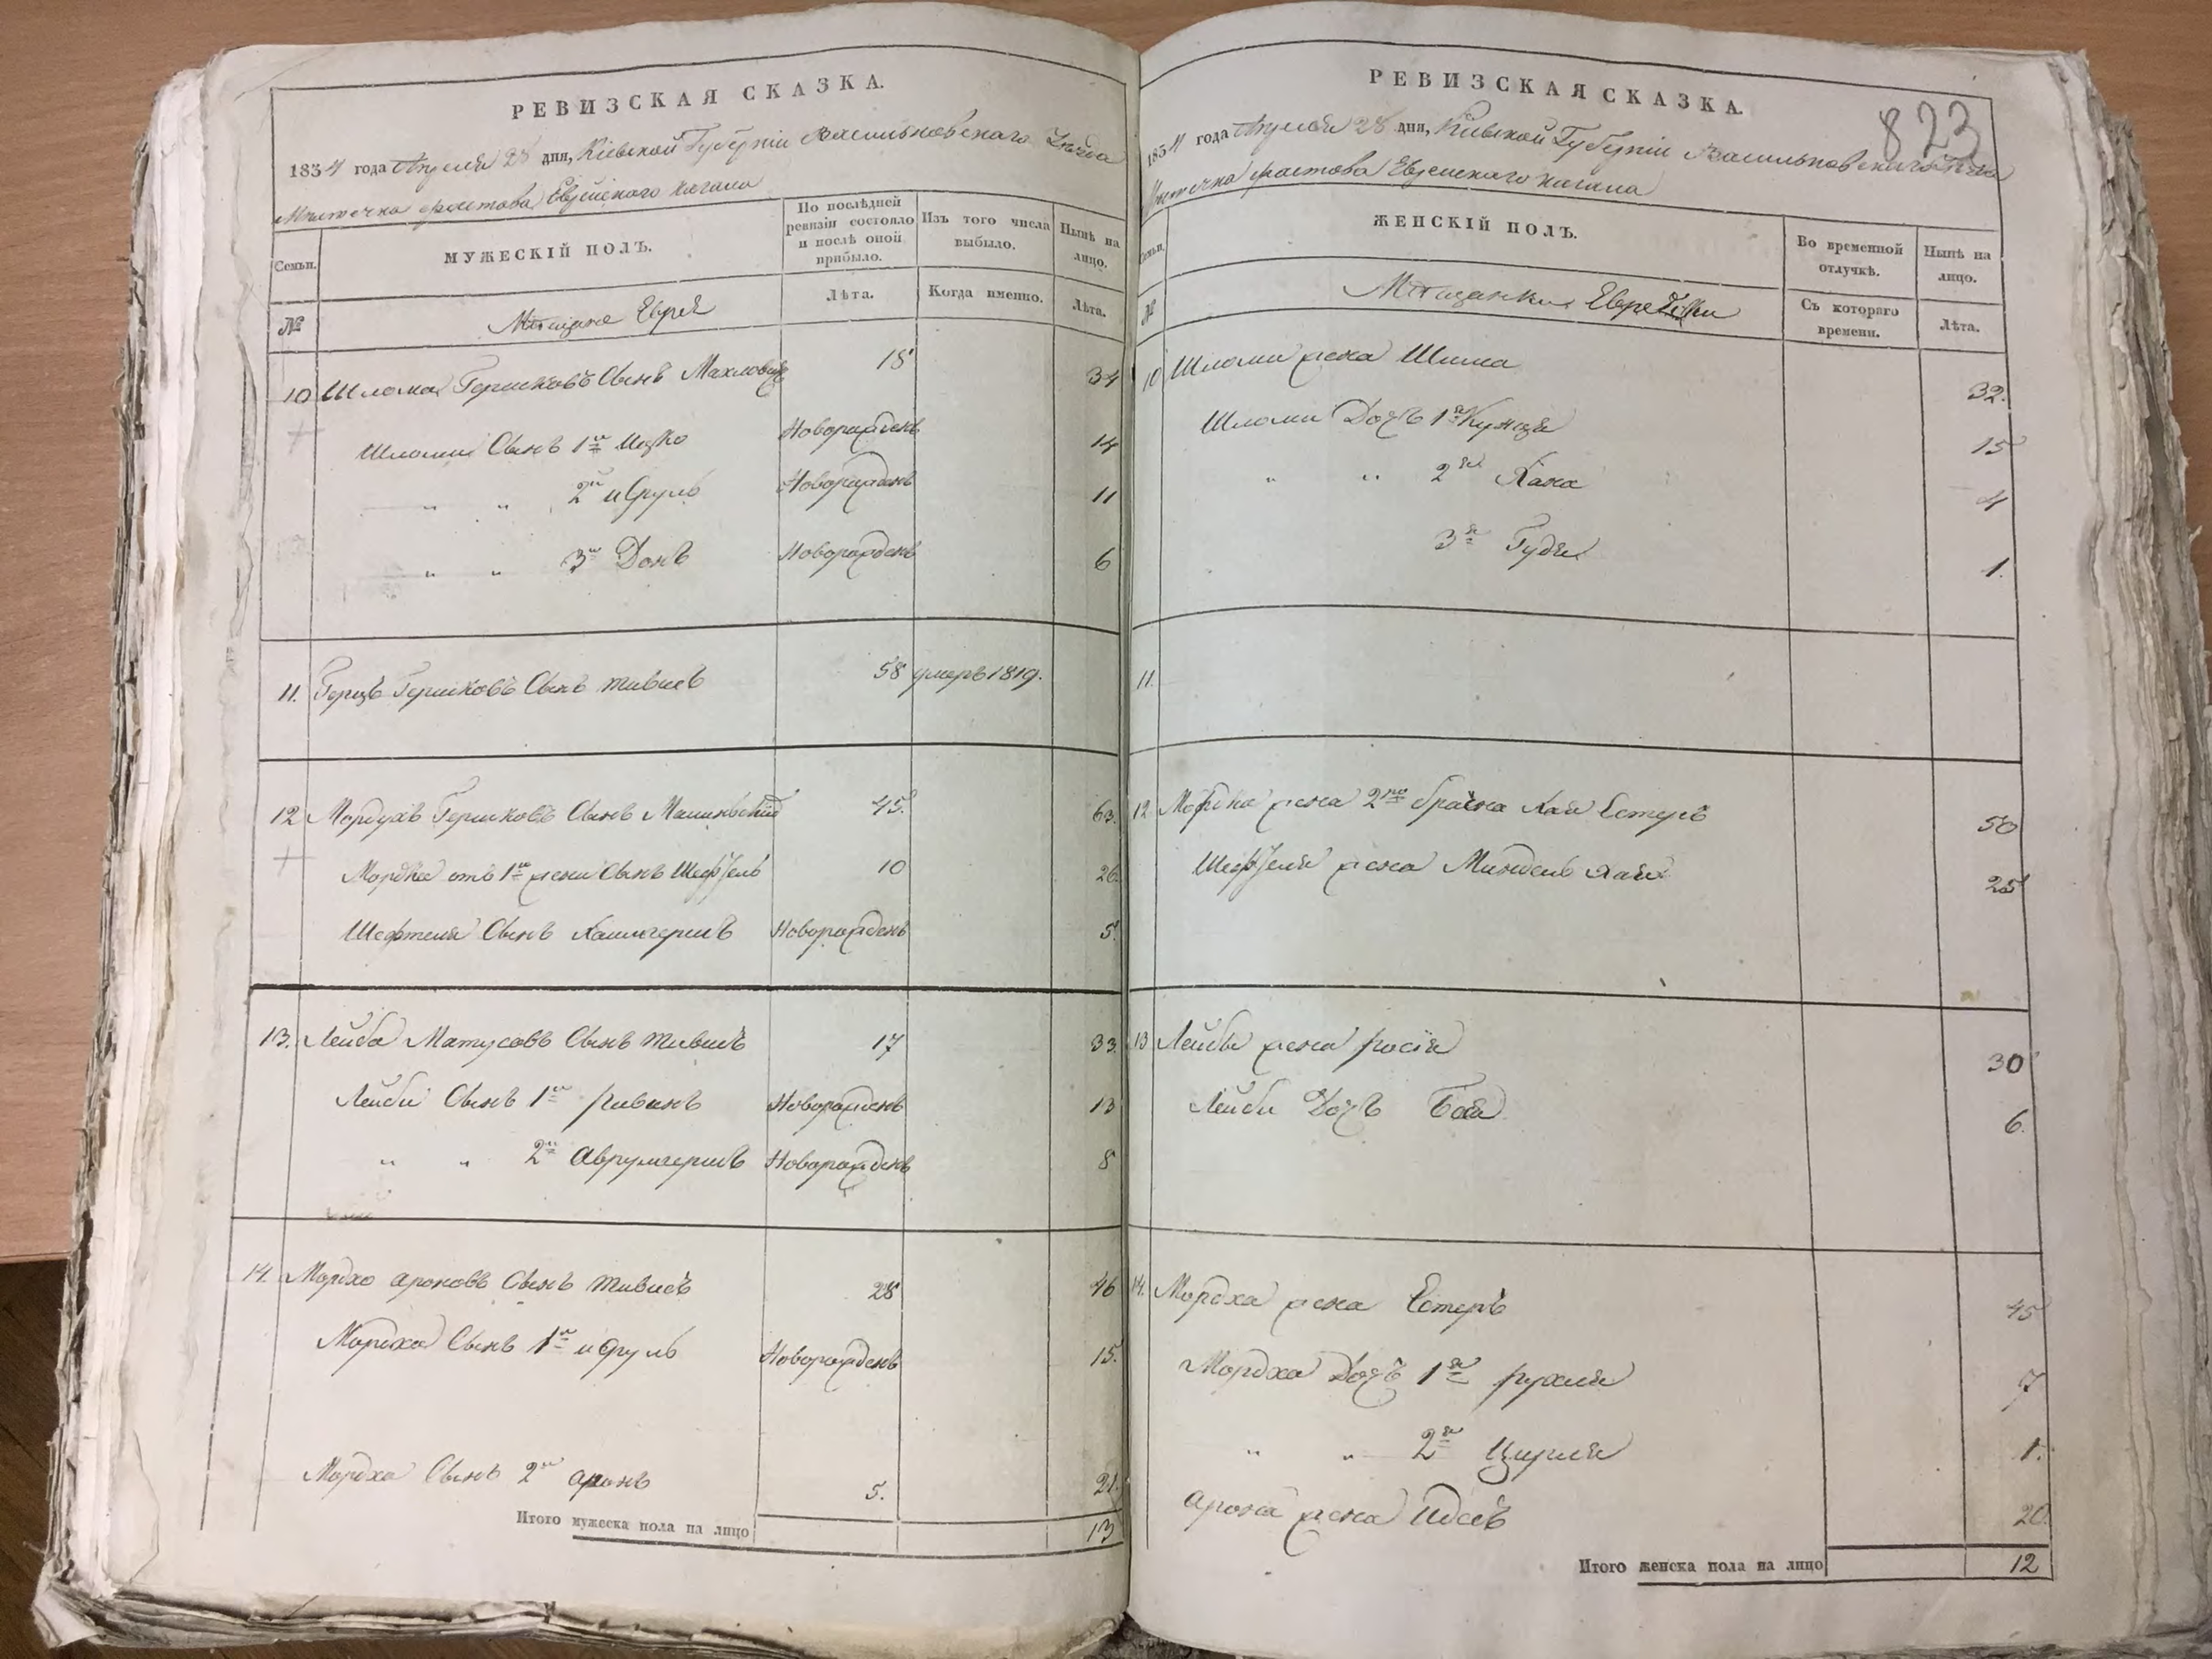 РЕВИЗСКАЯ СКАЗКА.
1834 года Апреля 28 дня, Кіевской Губерніи Васильковскаго Уезда
Местечка Фастова Еврейскаго кагала
Семьи.
МУЖЕСКІЙ ПОЛЪ.
По послѣдней ревизіи состояло и послѣ оной прибыло.
Изъ того числа выбыло.
Нынѣ на лицо.
№
Мѣщане Евреи
Лѣта.
Когда именно.
Лѣта.
10 Шлома Гершковъ Сынъ Махловичъ 18 34
Шломи Сынъ 1й Ицко Новорожденъ 14
" " 2й Исруль Новорожденъ 11
" " 3й Донъ Новорожденъ 6
11. Герцъ Гершковъ Сынъ Тивиевъ 58 умеръ 1819.
12 Мордухъ Гершковъ Сынъ 45. 63.
Мордка отъ 1й жены Сынъ Шефтель 10 26.
Шефтеля Сынъ Хаимгершъ Новорожденъ 5.
13. Лейба Матусовъ Сынъ 17 33.
Лейби Сынъ 1й Рувинъ Новорожденъ 13
" " 2й Аврумгершъ Новорожденъ 8
14. Мордхо Ароновъ Сынъ 28 46
Мордха Сынъ 1й Исруль Новорожденъ 15.
Мордха Сынъ 2й Аронъ 5. 21.
Итого мужеска пола на лицо 13
РЕВИЗСКАЯ СКАЗКА.
823
1834 года Апреля 28 дня, Кіевской Губерніи Васильковскаго
Местечка Фастова Еврейскаго кагала
Семьи.
ЖЕНСКІЙ ПОЛЪ.
Во временной отлучкѣ.
Нынѣ на лицо.
№
Мѣщанки Еврейки
Съ котораго времени.
Лѣта.
10 Шломи жена Шима 32.
Шломи Дочь 1я Кунця 15
" " 2я Хана 4
3я Гудя 1.
11.
12. Мордка жена 2го брачна Хая Естеръ 50
Шефтеля жена Миндель Хая 25
13 Лейбы жена Росія 30
Лейби Дочь 6.
14. Мордха жена Естеръ 45
Мордха Дочь 1я Рухля 7
" " 2я Цирля 1.
Арона жена Идесъ 20.
Итого женска пола на лицо 12